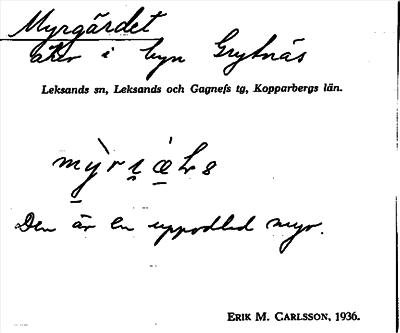 Myrgärdet
åker i byn Grytnäs
Leksands sn, Leksands och Gagnefs tg, Kopparbergs län.
Den är en uppodlad myr.
ERIK M. CARLSSON, 1936.